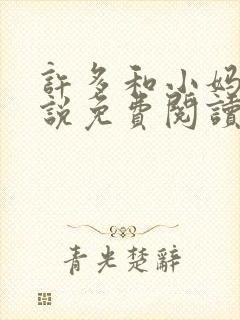 許多和小媽
說免費閱讀
青光楚辭